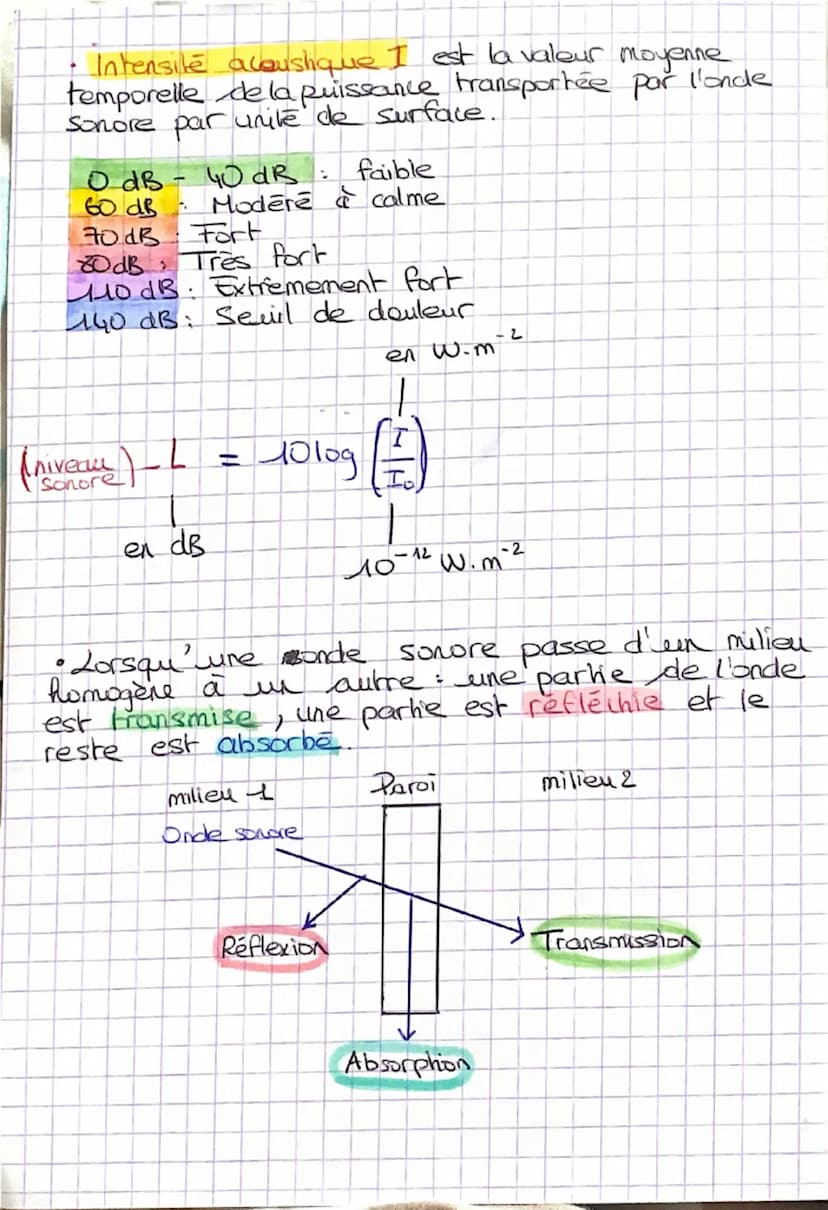 • Intensité acoustique I est la valeur moyenne
temporelle de la puissance transportée par l'onde
sonore par unité de surface.
0 dB - 40 dB : faible
60 dB : Modéré à calme
70 dB : Fort
80 dB : Très fort
110 dB : Extrêmement fort
140 dB : Seuil de douleur
en W.m⁻²
(niveau sonore) - L = 10 log (I/I₀)
en dB
10⁻¹² W.m⁻²
• Lorsqu'une onde sonore passe d'un milieu
homogène à un autre : une partie de l'onde
est transmise, une partie est réfléchie et le
reste est absorbé.
milieu 1 Paroi milieu 2
Onde sonore
Réflexion Transmission
Absorption